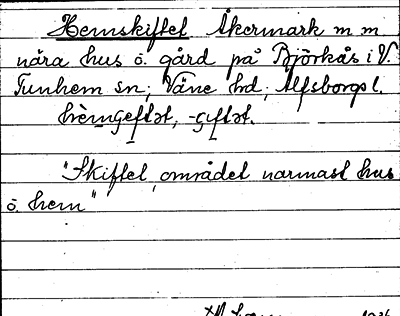 Hemskiftet Åkermark m m
nära hus o. gård på Björkås i V.
Tunhem sn; Väne hd; Älfsborgs l.
"Skiftet, området närmast hus
o. hem"